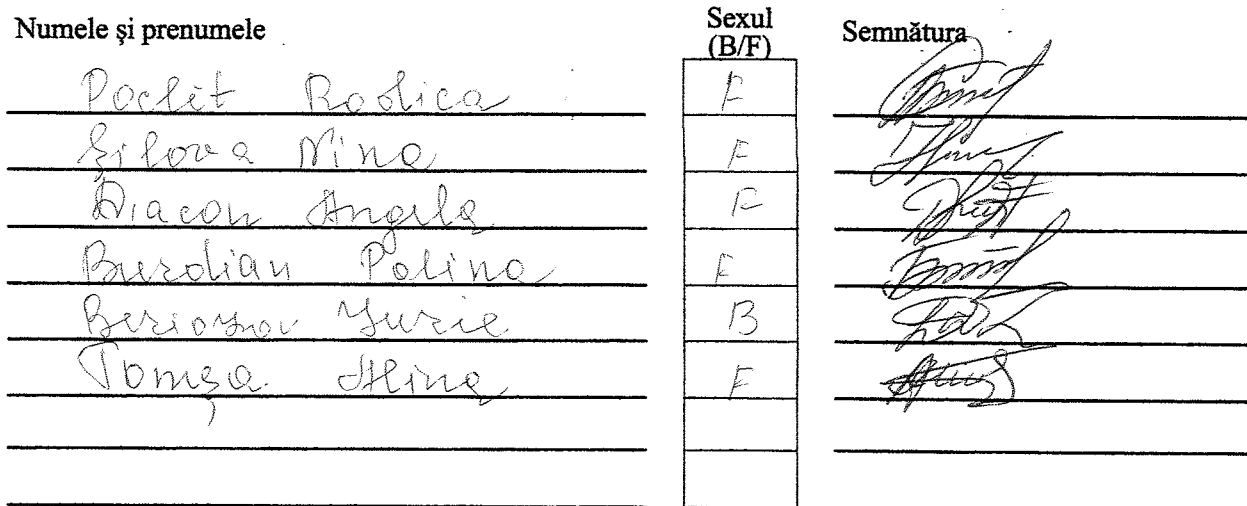 Numele și prenumele Sexul (B/F) Semnătura
Poclit Rodica F
Șilova Nina F
Diacon Angela F
Burdian Polina F
Beriozov Iurie B
Tomșa Alina F